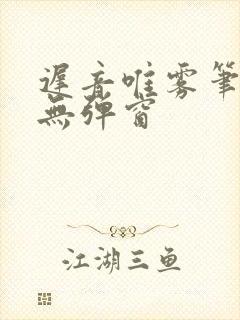 遲音唯雾筆
無弹窗
江湖三鱼